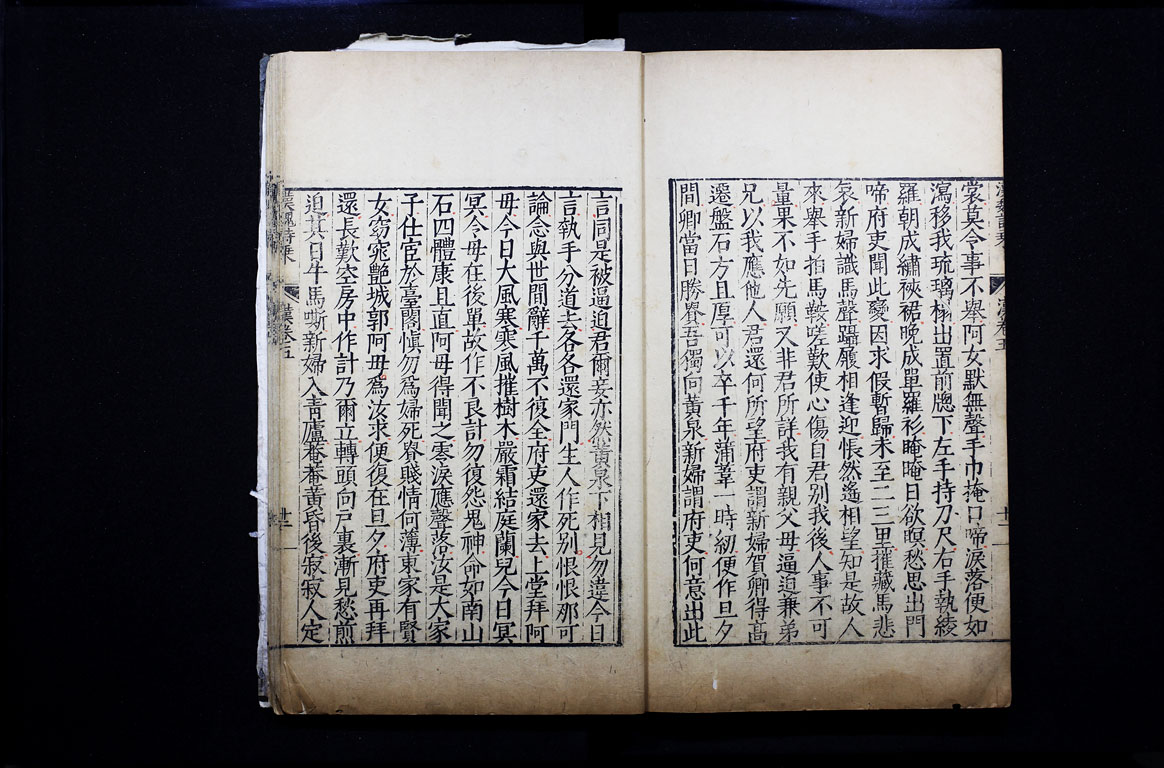 漢魏詩乘 漢卷五 廿一
裳莫令事不舉阿女默無聲手巾掩口啼淚落便如
瀉移我琉璃榻出置前牕下左手持刀尺右手執綾
羅朝成繡裌裙晚成單羅衫晻晻日欲暝愁思出門
啼府吏聞此變因求假暫歸未至二三里摧藏馬悲
哀新婦識馬聲躡履相逢迎悵然遙相望知是故人
來舉手拍馬鞍嗟歎使心傷自君別我後人事不可
量果不如先願又非君所詳我有親父母逼迫兼弟
兄以我應他人君還何所望府吏謂新婦賀卿得高
遷盤石方且厚可以卒千年蒲葦一時紉便作旦夕
間卿當日勝貴吾獨向黃泉新婦謂府吏何意出此
言同是被逼迫君爾妾亦然黃泉下相見勿違今日
言執手分道去各各還家門生人作死別恨恨那可
論念與世間辭千萬不復全府吏還家去上堂拜阿
母今日大風寒寒風摧樹木嚴霜結庭蘭兒今日冥
冥令母在後單故作不良計勿復怨鬼神命如南山
石四體康且直阿母得聞之零淚應聲落汝是大家
子仕宦於臺閣慎勿爲婦死貴賤情何薄東家有賢
女窈窕艷城郭阿母爲汝求便復在旦夕府吏再拜
還長歎空房中作計乃爾立轉頭向戶裏漸見愁煎
迫其日牛馬嘶新婦入青廬菴菴黃昏後寂寂人定
漢魏詩乘 漢卷五 廿二